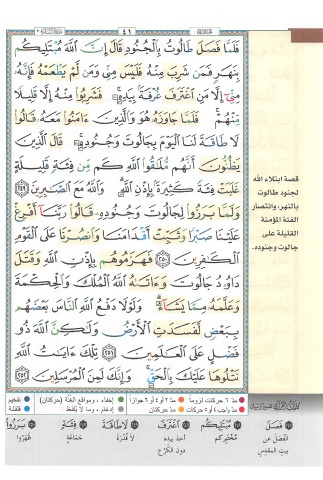 ٤١
فَلَمَّا فَصَلَ طَالُوتُ بِالْجُنُودِ قَالَ إِنَّ اللَّهَ مُبْتَلِيكُم
بِنَهَرٍ فَمَن شَرِبَ مِنْهُ فَلَيْسَ مِنِّي وَمَن لَّمْ يَطْعَمْهُ فَإِنَّهُ
مِنِّي إِلَّا مَنِ اغْتَرَفَ غُرْفَةً بِيَدِهِ فَشَرِبُوا مِنْهُ إِلَّا قَلِيلًا
مِّنْهُمْ فَلَمَّا جَاوَزَهُ هُوَ وَالَّذِينَ آمَنُوا مَعَهُ قَالُوا
لَا طَاقَةَ لَنَا الْيَوْمَ بِجَالُوتَ وَجُنُودِهِ قَالَ الَّذِينَ
يَظُنُّونَ أَنَّهُم مُّلَاقُو اللَّهِ كَم مِّن فِئَةٍ قَلِيلَةٍ
غَلَبَتْ فِئَةً كَثِيرَةً بِإِذْنِ اللَّهِ وَاللَّهُ مَعَ الصَّابِرِينَ ٢٤٩
وَلَمَّا بَرَزُوا لِجَالُوتَ وَجُنُودِهِ قَالُوا رَبَّنَا أَفْرِغْ
عَلَيْنَا صَبْرًا وَثَبِّتْ أَقْدَامَنَا وَانصُرْنَا عَلَى الْقَوْمِ
الْكَافِرِينَ ٢٥٠ فَهَزَمُوهُم بِإِذْنِ اللَّهِ وَقَتَلَ
دَاوُودُ جَالُوتَ وَآتَاهُ اللَّهُ الْمُلْكَ وَالْحِكْمَةَ
وَعَلَّمَهُ مِمَّا يَشَاءُ وَلَوْلَا دَفْعُ اللَّهِ النَّاسَ بَعْضَهُم
بِبَعْضٍ لَّفَسَدَتِ الْأَرْضُ وَلَٰكِنَّ اللَّهَ ذُو
فَضْلٍ عَلَى الْعَالَمِينَ ٢٥١ تِلْكَ آيَاتُ اللَّهِ
نَتْلُوهَا عَلَيْكَ بِالْحَقِّ وَإِنَّكَ لَمِنَ الْمُرْسَلِينَ ٢٥٢
قصة ابتلاء الله
لجنود طالوت
بالنهر، وانتصار
الفئة المؤمنة
القليلة على
جالوت وجنوده.
مد ٦ حركات لزوماً مد ٢ أو ٤ أو ٦ جوازاً إخفاء، ومواقع الغنّة (حركتان) تفخيم
مد واجب ٤ أو ٥ حركات مد حركتان إدغام، وما لا يُلفظ قلقلة
فَصَلَ مُبْتَلِيكُم اغْتَرَفَ لَا طَاقَةَ فِئَةٍ بَرَزُوا
انفصل عن بيت المقدس
مُختبركم
أخذ بيده دون الكَرْع
لا قُدرة
جَماعَةٍ
ظَهَرُوا